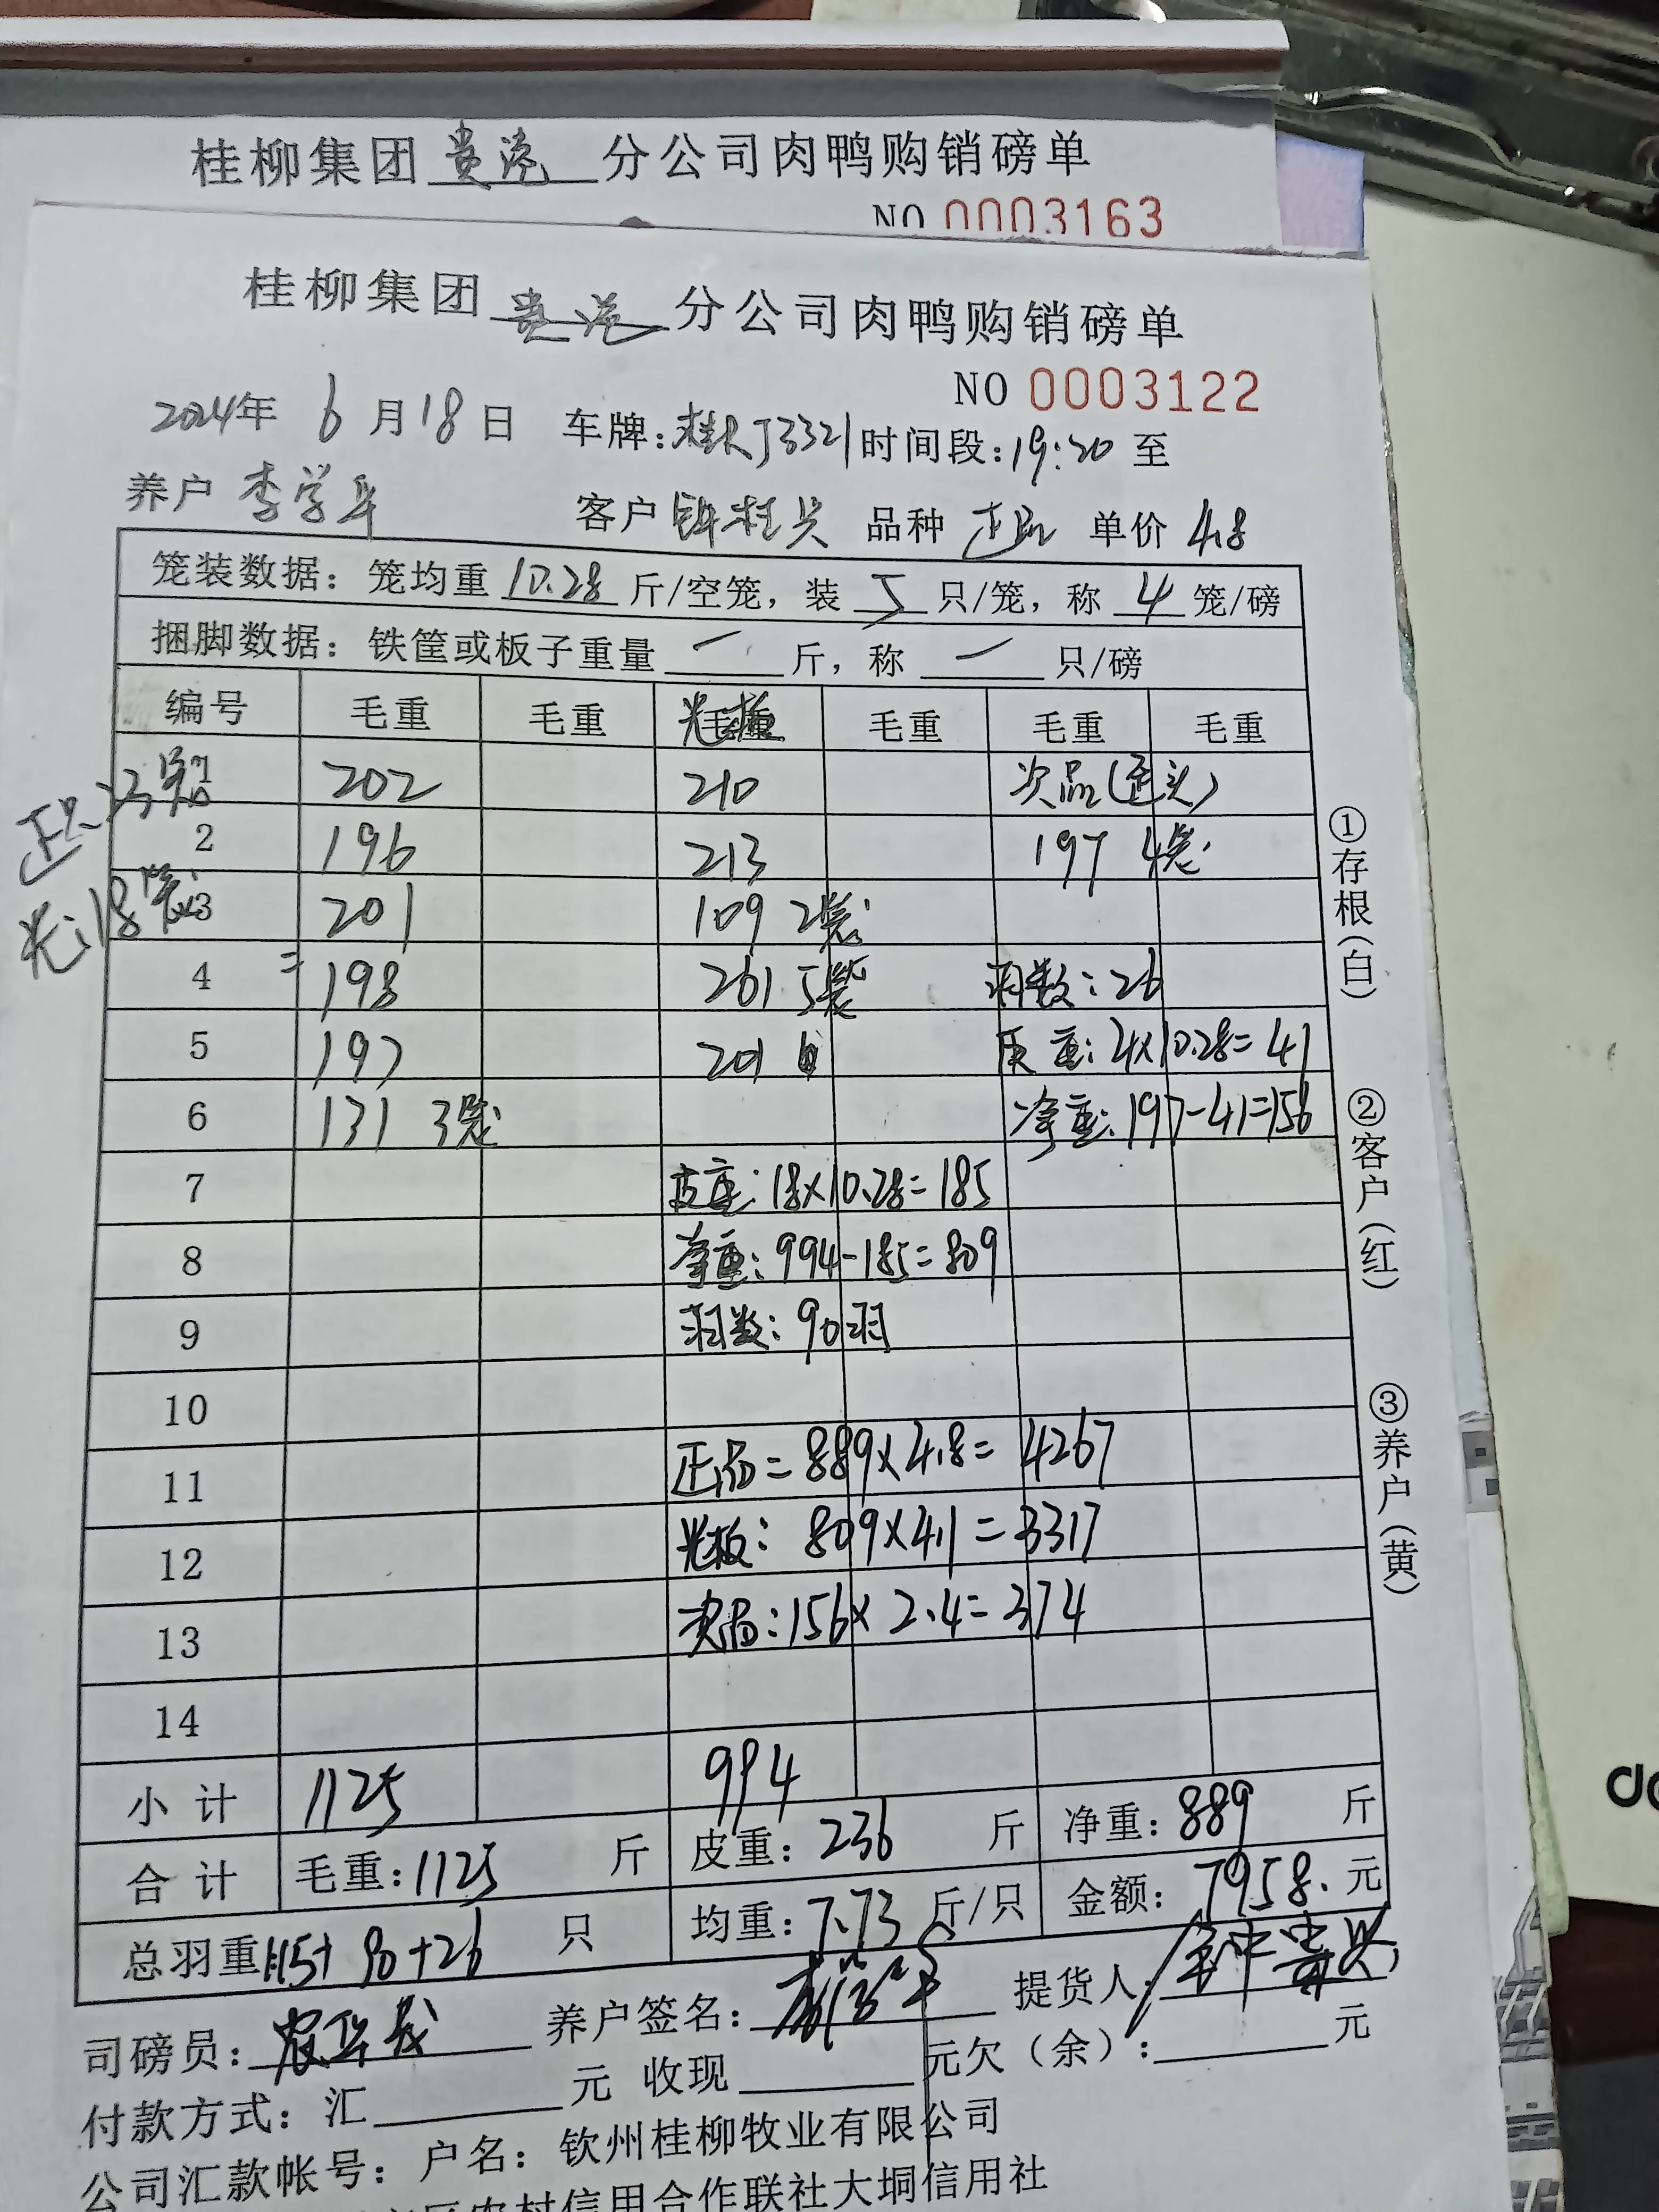 桂柳集团 贵港 分公司肉鸭购销磅单
NO 0003163
桂柳集团 贵港 分公司肉鸭购销磅单
NO 0003122
2024年 6月18日 车牌:桂RJ3321 时间段:19:20 至
养户 李学平 客户 钟桂兴 品种 正品 单价 4.8
笼装数据: 笼均重 10.28 斤/空笼, 装 5 只/笼, 称 4 笼/磅
捆脚数据: 铁筐或板子重量 — 斤, 称 — 只/磅
编号 毛重 毛重 光板 毛重 毛重 毛重
正只 23笼
光:18笼
1 202 210 次品(歪头)
2 196 213 197 4笼
3 201 109 2笼
4 198 261 5笼 羽数:26
5 197 201 皮重:4×10.28=41
6 131 3笼 净重:197-41=156
7 皮重:18×10.28=185
8 净重:994-185=809
9 羽数:90羽
10
11 正品=889×4.8=4267
12 光板:809×4.1=3317
13 次品:156×2.4=374
14
小计 1125 994
合计 毛重:1125 斤 皮重:236 斤 净重:889 斤
总羽重:115+90+26 只 均重:7.73 斤/只 金额:7958.元
司磅员: 养户签名: 提货人:
付款方式: 汇 元 收现 元欠(余): 元
公司汇款帐号: 户名: 钦州桂柳牧业有限公司
区农村信用合作联社大垌信用社
①存根(白)
②客户(红)
③养户(黄)